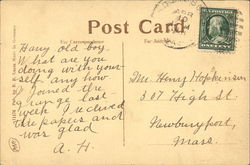 Post Card
For Correspondence
For Address
Harry old boy.
What are you
doing with your
self any how
I joined the
grange last
week I received
the papers and
was glad
A. H.
Mr. Henry Hopkinson
307 High St.
Newburyport,
Mass.
ONE CENT